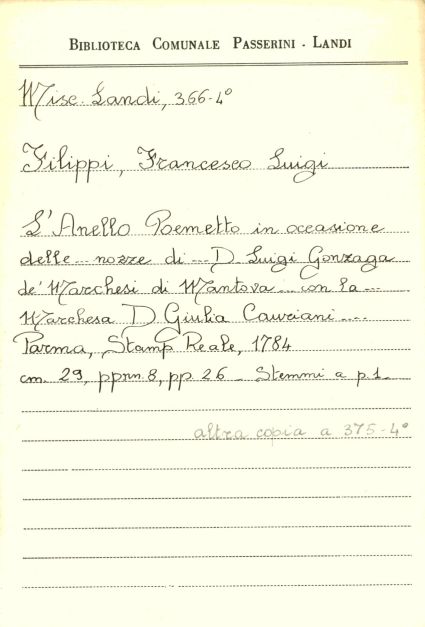 BIBLIOTECA COMUNALE PASSERINI - LANDI
Misc. Landi, 366-4°
Filippi, Francesco Luigi
L'Anello Poemetto in occasione
delle ... nozze di ... D. Luigi Gonzaga
de' Marchesi di Mantova ... con la ...
Marchesa D. Giulia Cavriani ...
Parma, Stamp. Reale, 1784
cm. 29, ppnn. 8, pp. 26 - Stemmi a p. 1 -
altra copia a 375-4°